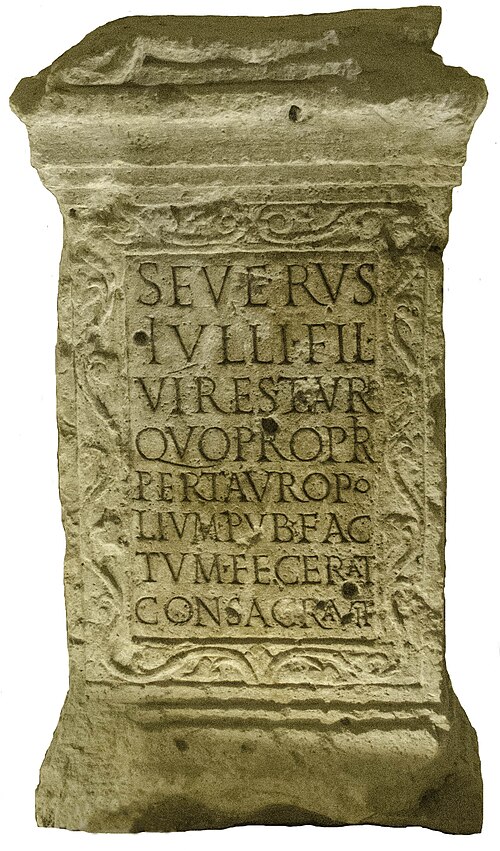 SEVERVS
IVLLI·FIL
VIRES TAVR
QVO PROPR
PER TAVROPO
LIVM·PVB·FAC
TVM·FECERAT
CONSACRAVIT